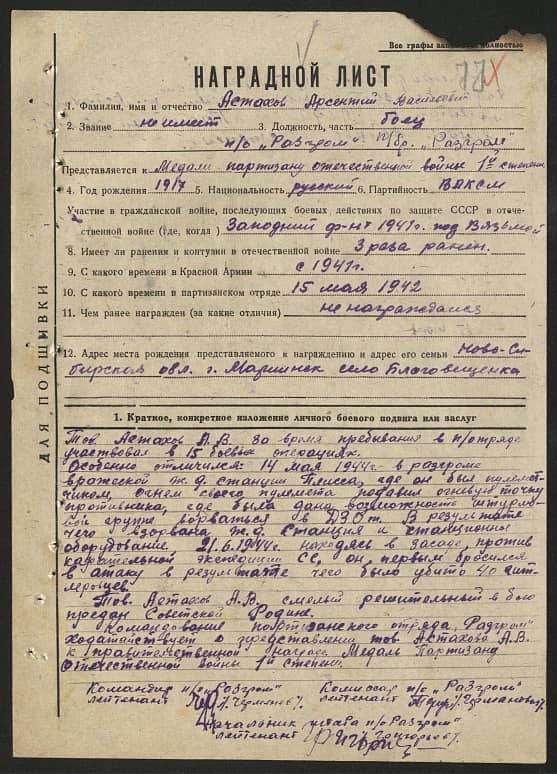 Все графы заполнять полностью
НАГРАДНОЙ ЛИСТ
77
1. Фамилия, имя и отчество Астахов Арсентий Васильевич
2. Звание не имеет 3. Должность, часть боец
п/о „Разгром" п/бр. „Разгром"
Представляется к Медали партизану отечественной войны 1й степени
4. Год рождения 1917 5. Национальность русский 6. Партийность ВЛКСМ
Участие в гражданской войне, последующих боевых действиях по защите СССР в отече-
ственной войне (где, когда) Западний фр-нт 1941г. под Вязьмой
8. Имеет ли ранения и контузии в отечественной войне 3 раза ранен.
9. С какого времени в Красной Армии с 1941г.
10. С какого времени в партизанском отряде 15 мая 1942
11. Чем ранее награжден (за какие отличия) не награждался
12. Адрес места рождения представляемого к награждению и адрес его семьи Ново-Си-
бирской обл. г. Мариинск село Благовещенка
ДЛЯ ПОДШИВКИ
1. Краткое, конкретное изложение личного боевого подвига или заслуг
Тов. Астахов А.В. за время пребывания в п/отряде
участвовал в 15 боевых операциях.
Особенно отличился: 14 мая 1944г. в разгроме
вражеской ж.д. станции Плисса, где он был пулемет-
чиком, огнем своего пулемета подавил огневую точку
противника, где была дана возможность штурмо-
вой группе ворваться в ДЗОТ. В результате
чего взорвана ж.д. станция и станционное
оборудование 21.6.1944г. находясь в засаде, против
карательной экспедиции СС, он первым бросился
в атаку в результате чего было убито 40 гит-
лерьцев.
Тов. Астахов А.В. смелый решительный в бою
предан Советской Родине.
Командование партизанского отряда „Разгром"
ходатайствует о представлении тов Астахова А.В.
к правительственной награде Медаль Партизану
Отечественной войны 1й степени.
Командир п/о „Разгром"
лейтенант
Комиссар п/о „Разгром"
лейтенант
Начальник штаба п/о „Разгром"
лейтенант /Григорьев/.